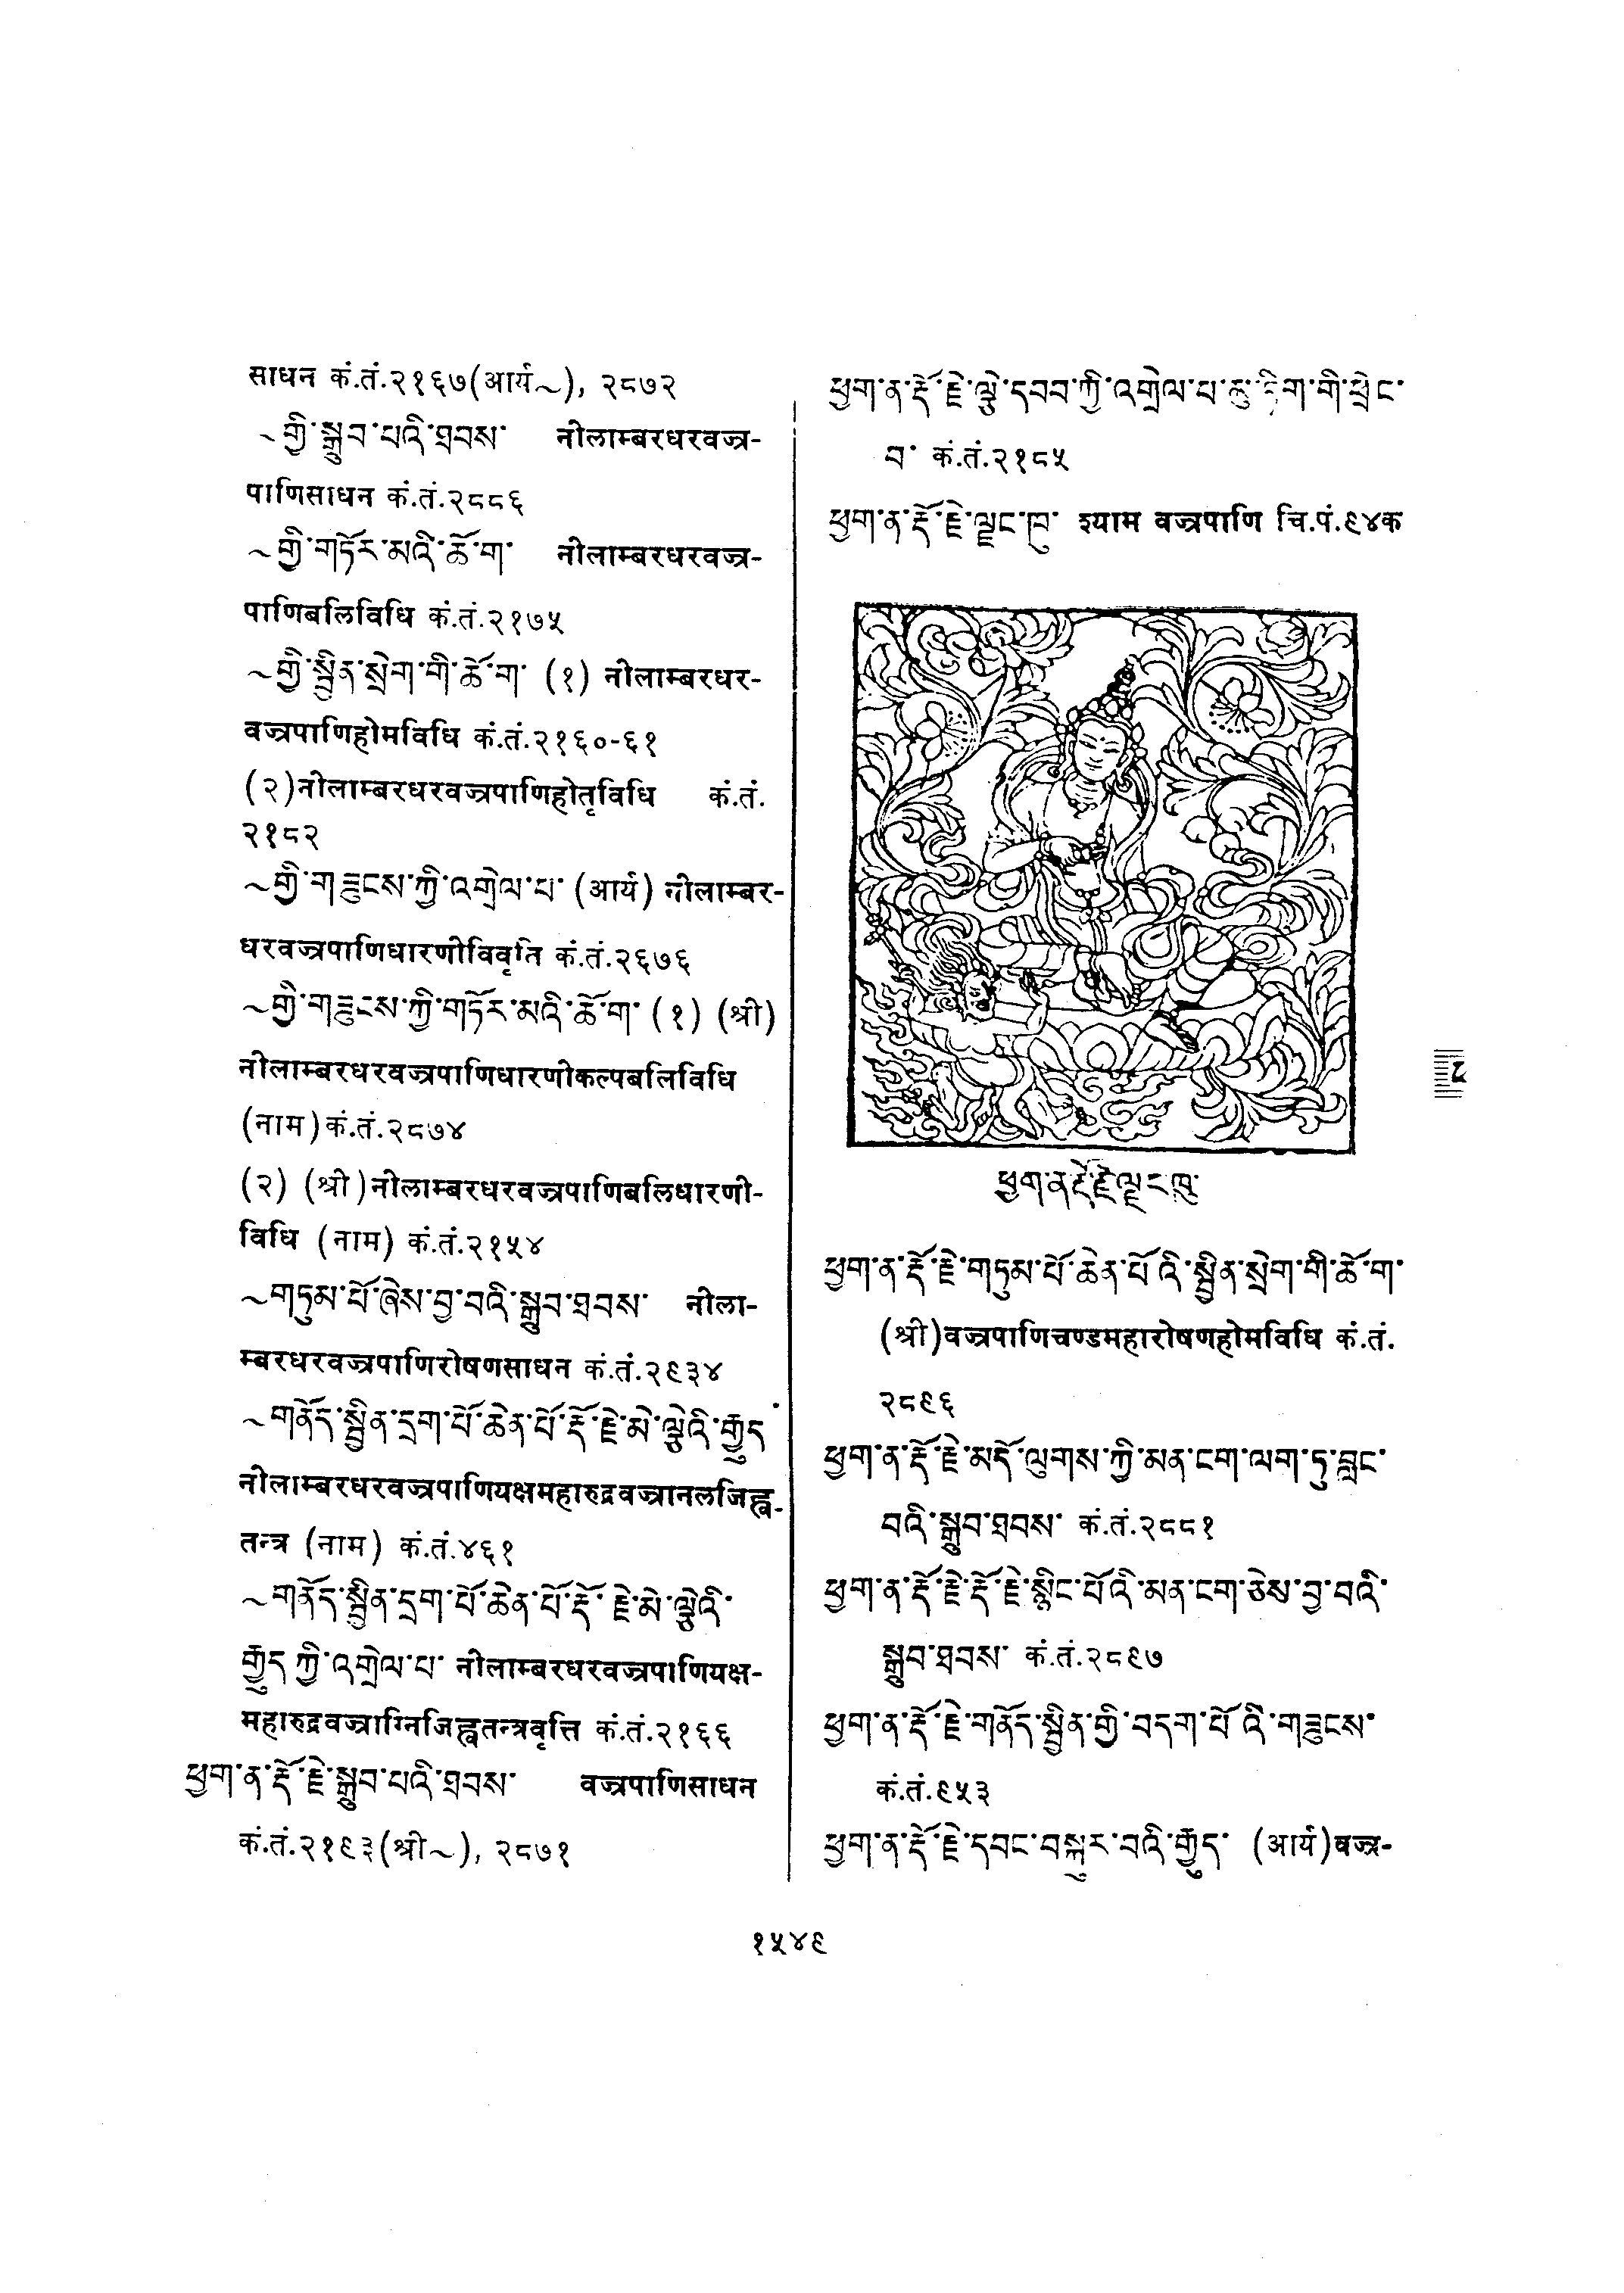 साधन कं.तं.२१६७(आर्य~), २८७२
~གྱི་སྒྲུབ་པའི་ཐབས་ नीलाम्बरधरवज्र-
पाणिसाधन कं.तं.२८८६
~གྱི་གཏོར་མའི་ཆོ་ག་ नीलाम्बरधरवज्र-
पाणिबलिविधि कं.तं.२१७५
~གྱི་སྦྱིན་སྲེག་གི་ཆོ་ག་ (१) नीलाम्बरधर-
वज्रपाणिहोमविधि कं.तं.२१६०-६१
(२)नीलाम्बरधरवज्रपाणिहोतृविधि कं.तं.
२१८२
~གྱི་གཟུངས་ཀྱི་འགྲེལ་པ་ (आर्य) नीलाम्बर-
धरवज्रपाणिधारणीविवृति कं.तं.२६७६
~གྱི་གཟུངས་ཀྱི་གཏོར་མའི་ཆོ་ག་ (१) (श्री)
नीलाम्बरधरवज्रपाणिधारणीकल्पबलिविधि
(नाम)कं.तं.२८७४
(२) (श्री)नीलाम्बरधरवज्रपाणिबलिधारणी-
विधि (नाम) कं.तं.२१५४
~གཏུམ་པོ་ཞེས་བྱ་བའི་སྒྲུབ་ཐབས་ नीला-
म्बरधरवज्रपाणिरोषणसाधन कं.तं.२९३४
~གནོད་སྦྱིན་དྲག་པོ་ཆེན་པོ་རྡོ་རྗེ་མེ་ལྕེའི་རྒྱུད་
नीलाम्बरधरवज्रपाणियक्षमहारुद्रवज्रानलजिह्व-
तन्त्र (नाम) कं.तं.४६१
~གནོད་སྦྱིན་དྲག་པོ་ཆེན་པོ་རྡོ་རྗེ་མེ་ལྕེའི་
རྒྱུད་ཀྱི་འགྲེལ་པ་ नीलाम्बरधरवज्रपाणियक्ष-
महारुद्रवज्राग्निजिह्वतन्त्रवृत्ति कं.तं.२१६६
ཕྱག་ན་རྡོ་རྗེ་སྒྲུབ་པའི་ཐབས་ वज्रपाणिसाधन
कं.तं.२१९३(श्री~), २८७१
ཕྱག་ན་རྡོ་རྗེ་ལྷུ་དབབ་ཀྱི་འགྲེལ་པ་མུ་ཏིག་གི་ཕྲེང་
བ་ कं.तं.२१८५
ཕྱག་ན་རྡོ་རྗེ་ལྗང་ཁུ་ श्याम वज्रपाणि चि.पं.९४क
ཕྱག་ན་རྡོ་རྗེ་ལྗང་ཁུ་
ཕྱག་ན་རྡོ་རྗེ་གཏུམ་པོ་ཆེན་པོའི་སྦྱིན་སྲེག་གི་ཆོ་ག་
(श्री)वज्रपाणिचण्डमहारोषणहोमविधि कं.तं.
२८९६
ཕྱག་ན་རྡོ་རྗེ་མདོ་ལུགས་ཀྱི་མན་ངག་ལག་ཏུ་བླང་
བའི་སྒྲུབ་ཐབས་ कं.तं.२८८१
ཕྱག་ན་རྡོ་རྗེ་རྡོ་རྗེ་སྙིང་པོའི་མན་ངག་ཅེས་བྱ་བའི་
སྒྲུབ་ཐབས་ कं.तं.२८९७
ཕྱག་ན་རྡོ་རྗེ་གནོད་སྦྱིན་གྱི་བདག་པོའི་གཟུངས་
कं.तं.९५३
ཕྱག་ན་རྡོ་རྗེ་དབང་བསྐུར་བའི་རྒྱུད་ (आर्य)वज्र-
१५४९